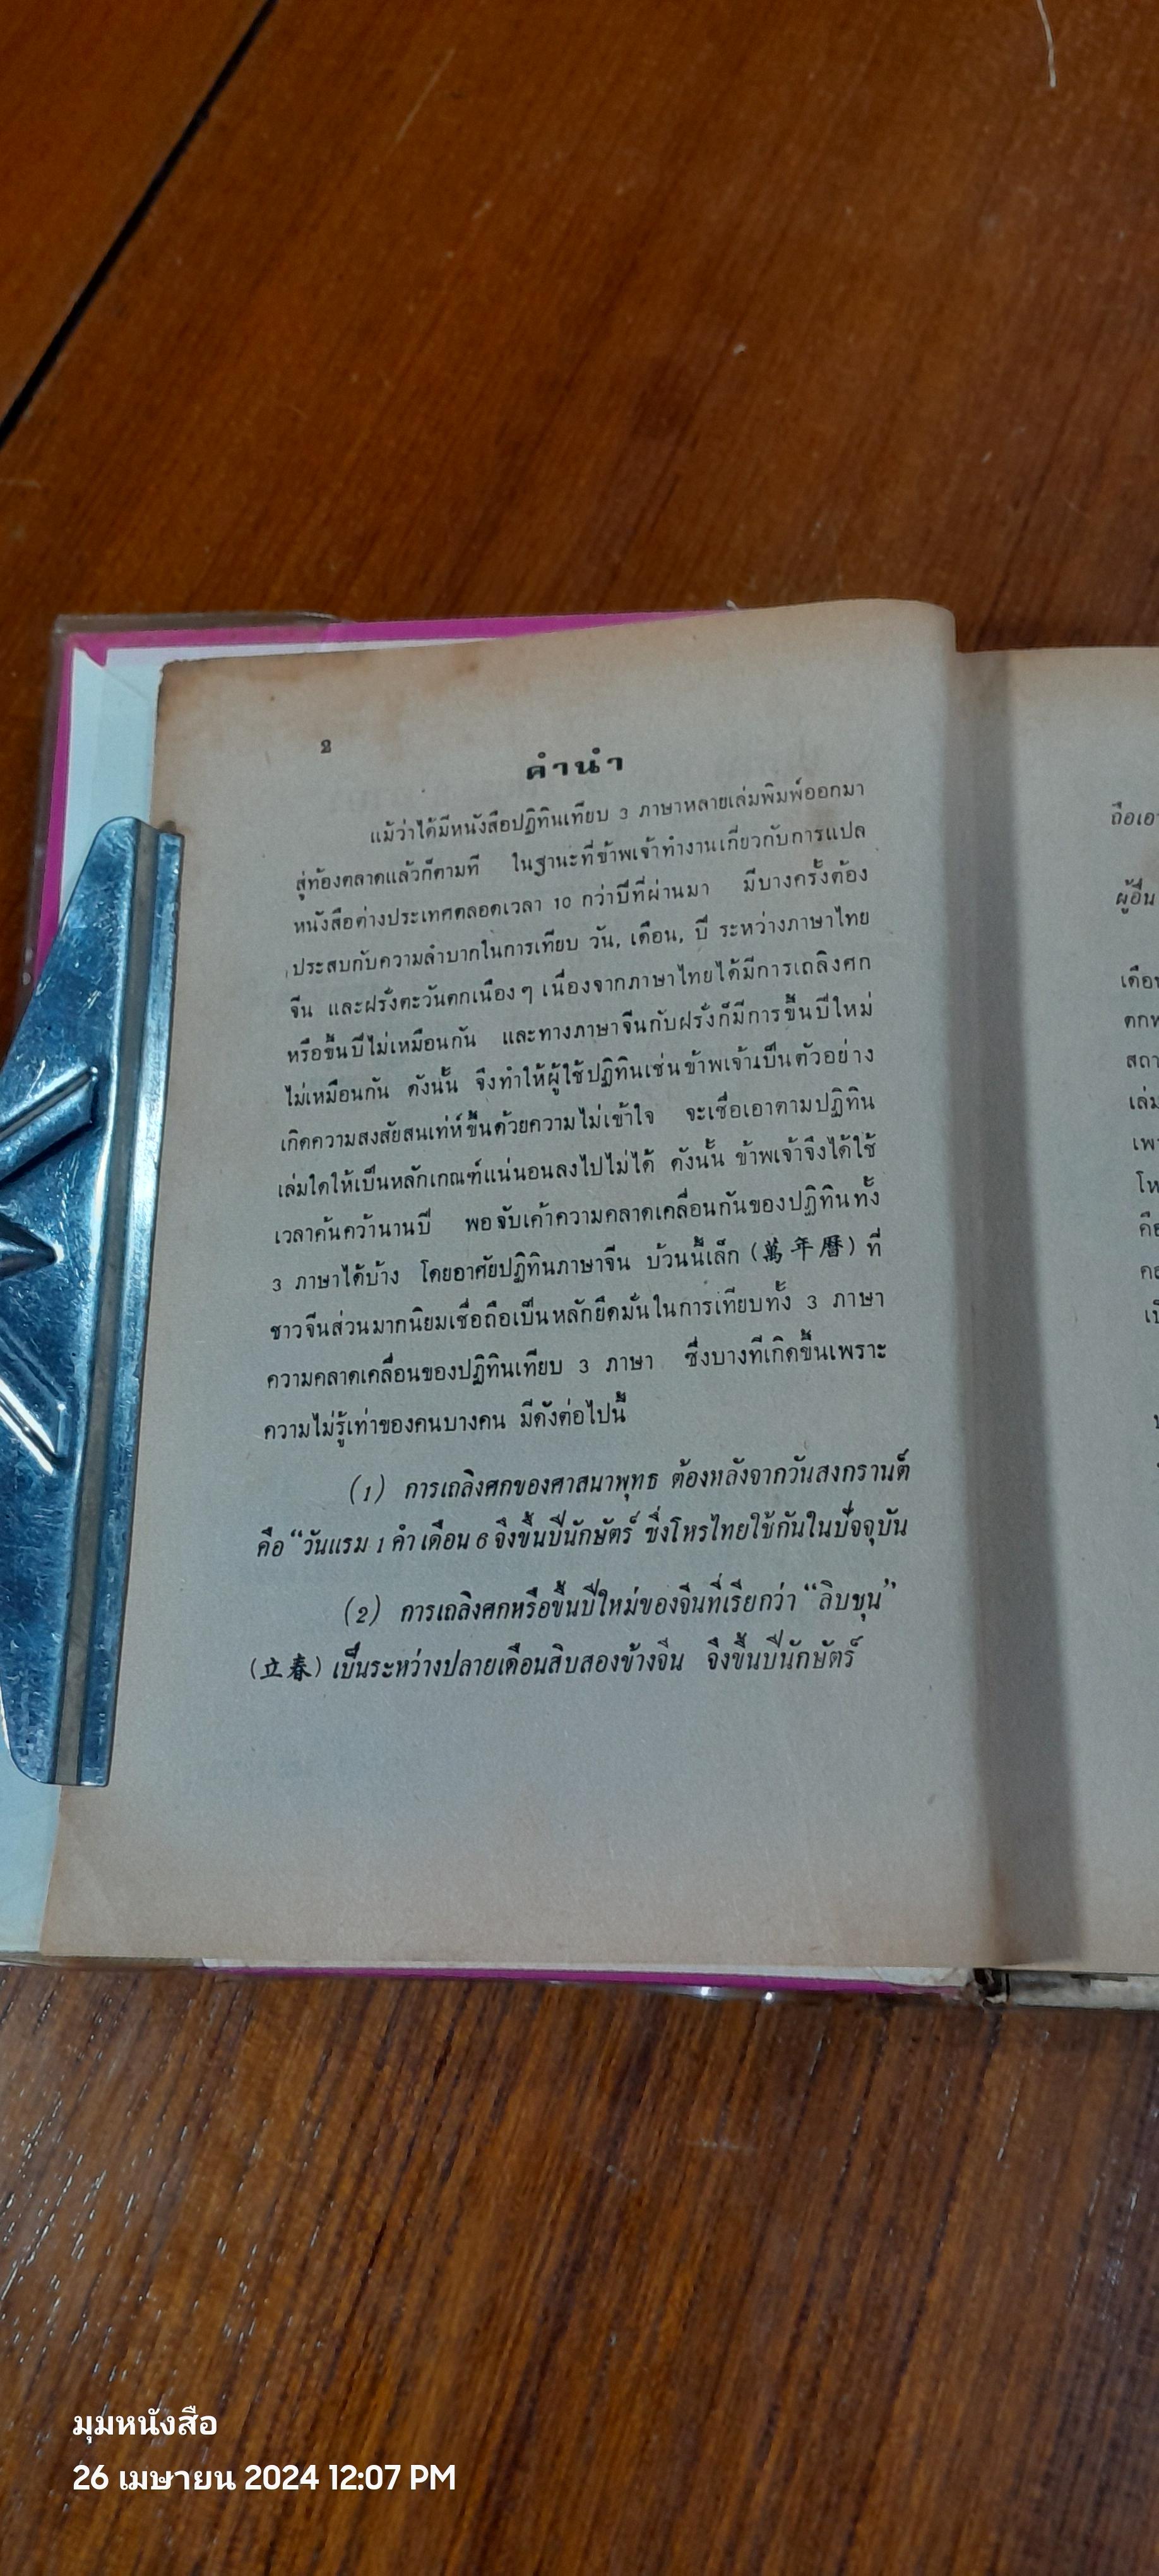 2
คำนำ
แม้ว่าได้มีหนังสือปฏิทินเทียบ 3 ภาษาหลายเล่มพิมพ์ออกมา
สู่ท้องตลาดแล้วก็ตามที ในฐานะที่ข้าพเจ้าทำงานเกี่ยวกับการแปล
หนังสือต่างประเทศตลอดเวลา 10 กว่าปีที่ผ่านมา มีบางครั้งต้อง
ประสบกับความลำบากในการเทียบ วัน, เดือน, ปี ระหว่างภาษาไทย
จีน และฝรั่งตะวันตกเนืองๆ เนื่องจากภาษาไทยได้มีการเถลิงศก
หรือขึ้นปีไม่เหมือนกัน และทางภาษาจีนกับฝรั่งก็มีการขึ้นปีใหม่
ไม่เหมือนกัน ดังนั้น จึงทำให้ผู้ใช้ปฏิทินเช่นข้าพเจ้าเป็นตัวอย่าง
เกิดความสงสัยสนเท่ห์ขึ้นด้วยความไม่เข้าใจ จะเชื่อเอาตามปฏิทิน
เล่มใดให้เป็นหลักเกณฑ์แน่นอนลงไปไม่ได้ ดังนั้น ข้าพเจ้าจึงได้ใช้
เวลาค้นคว้านานปี พอจับเค้าความคลาดเคลื่อนกันของปฏิทินทั้ง
3 ภาษาได้บ้าง โดยอาศัยปฏิทินภาษาจีน บ้วนนี้เล็ก (萬年曆) ที่
ชาวจีนส่วนมากนิยมเชื่อถือเป็นหลักยึดมั่นในการเทียบทั้ง 3 ภาษา
ความคลาดเคลื่อนของปฏิทินเทียบ 3 ภาษา ซึ่งบางทีเกิดขึ้นเพราะ
ความไม่รู้เท่าของคนบางคน มีดังต่อไปนี้
(1) การเถลิงศกของศาสนาพุทธ ต้องหลังจากวันสงกรานต์
คือ “วันแรม 1 ค่ำ เดือน 6 จึงขึ้นปีนักษัตร์ ซึ่งโหรไทยใช้กันในปัจจุบัน
(2) การเถลิงศกหรือขึ้นปีใหม่ของจีนที่เรียกว่า “ลิบชุน”
(立春) เป็นระหว่างปลายเดือนสิบสองข้างจีน จึงขึ้นปีนักษัตร์
ผู้อื่น
มุมหนังสือ
26 เมษายน 2024 12:07 PM